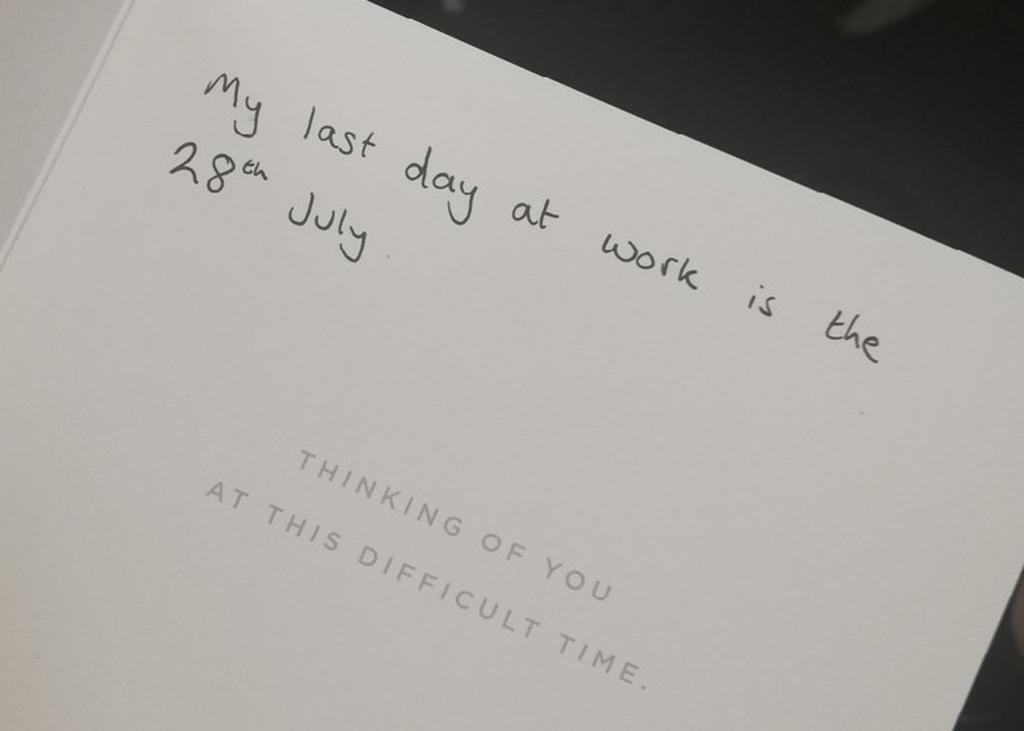 My last day at work is the
28th July.
THINKING OF YOU
AT THIS DIFFICULT TIME.